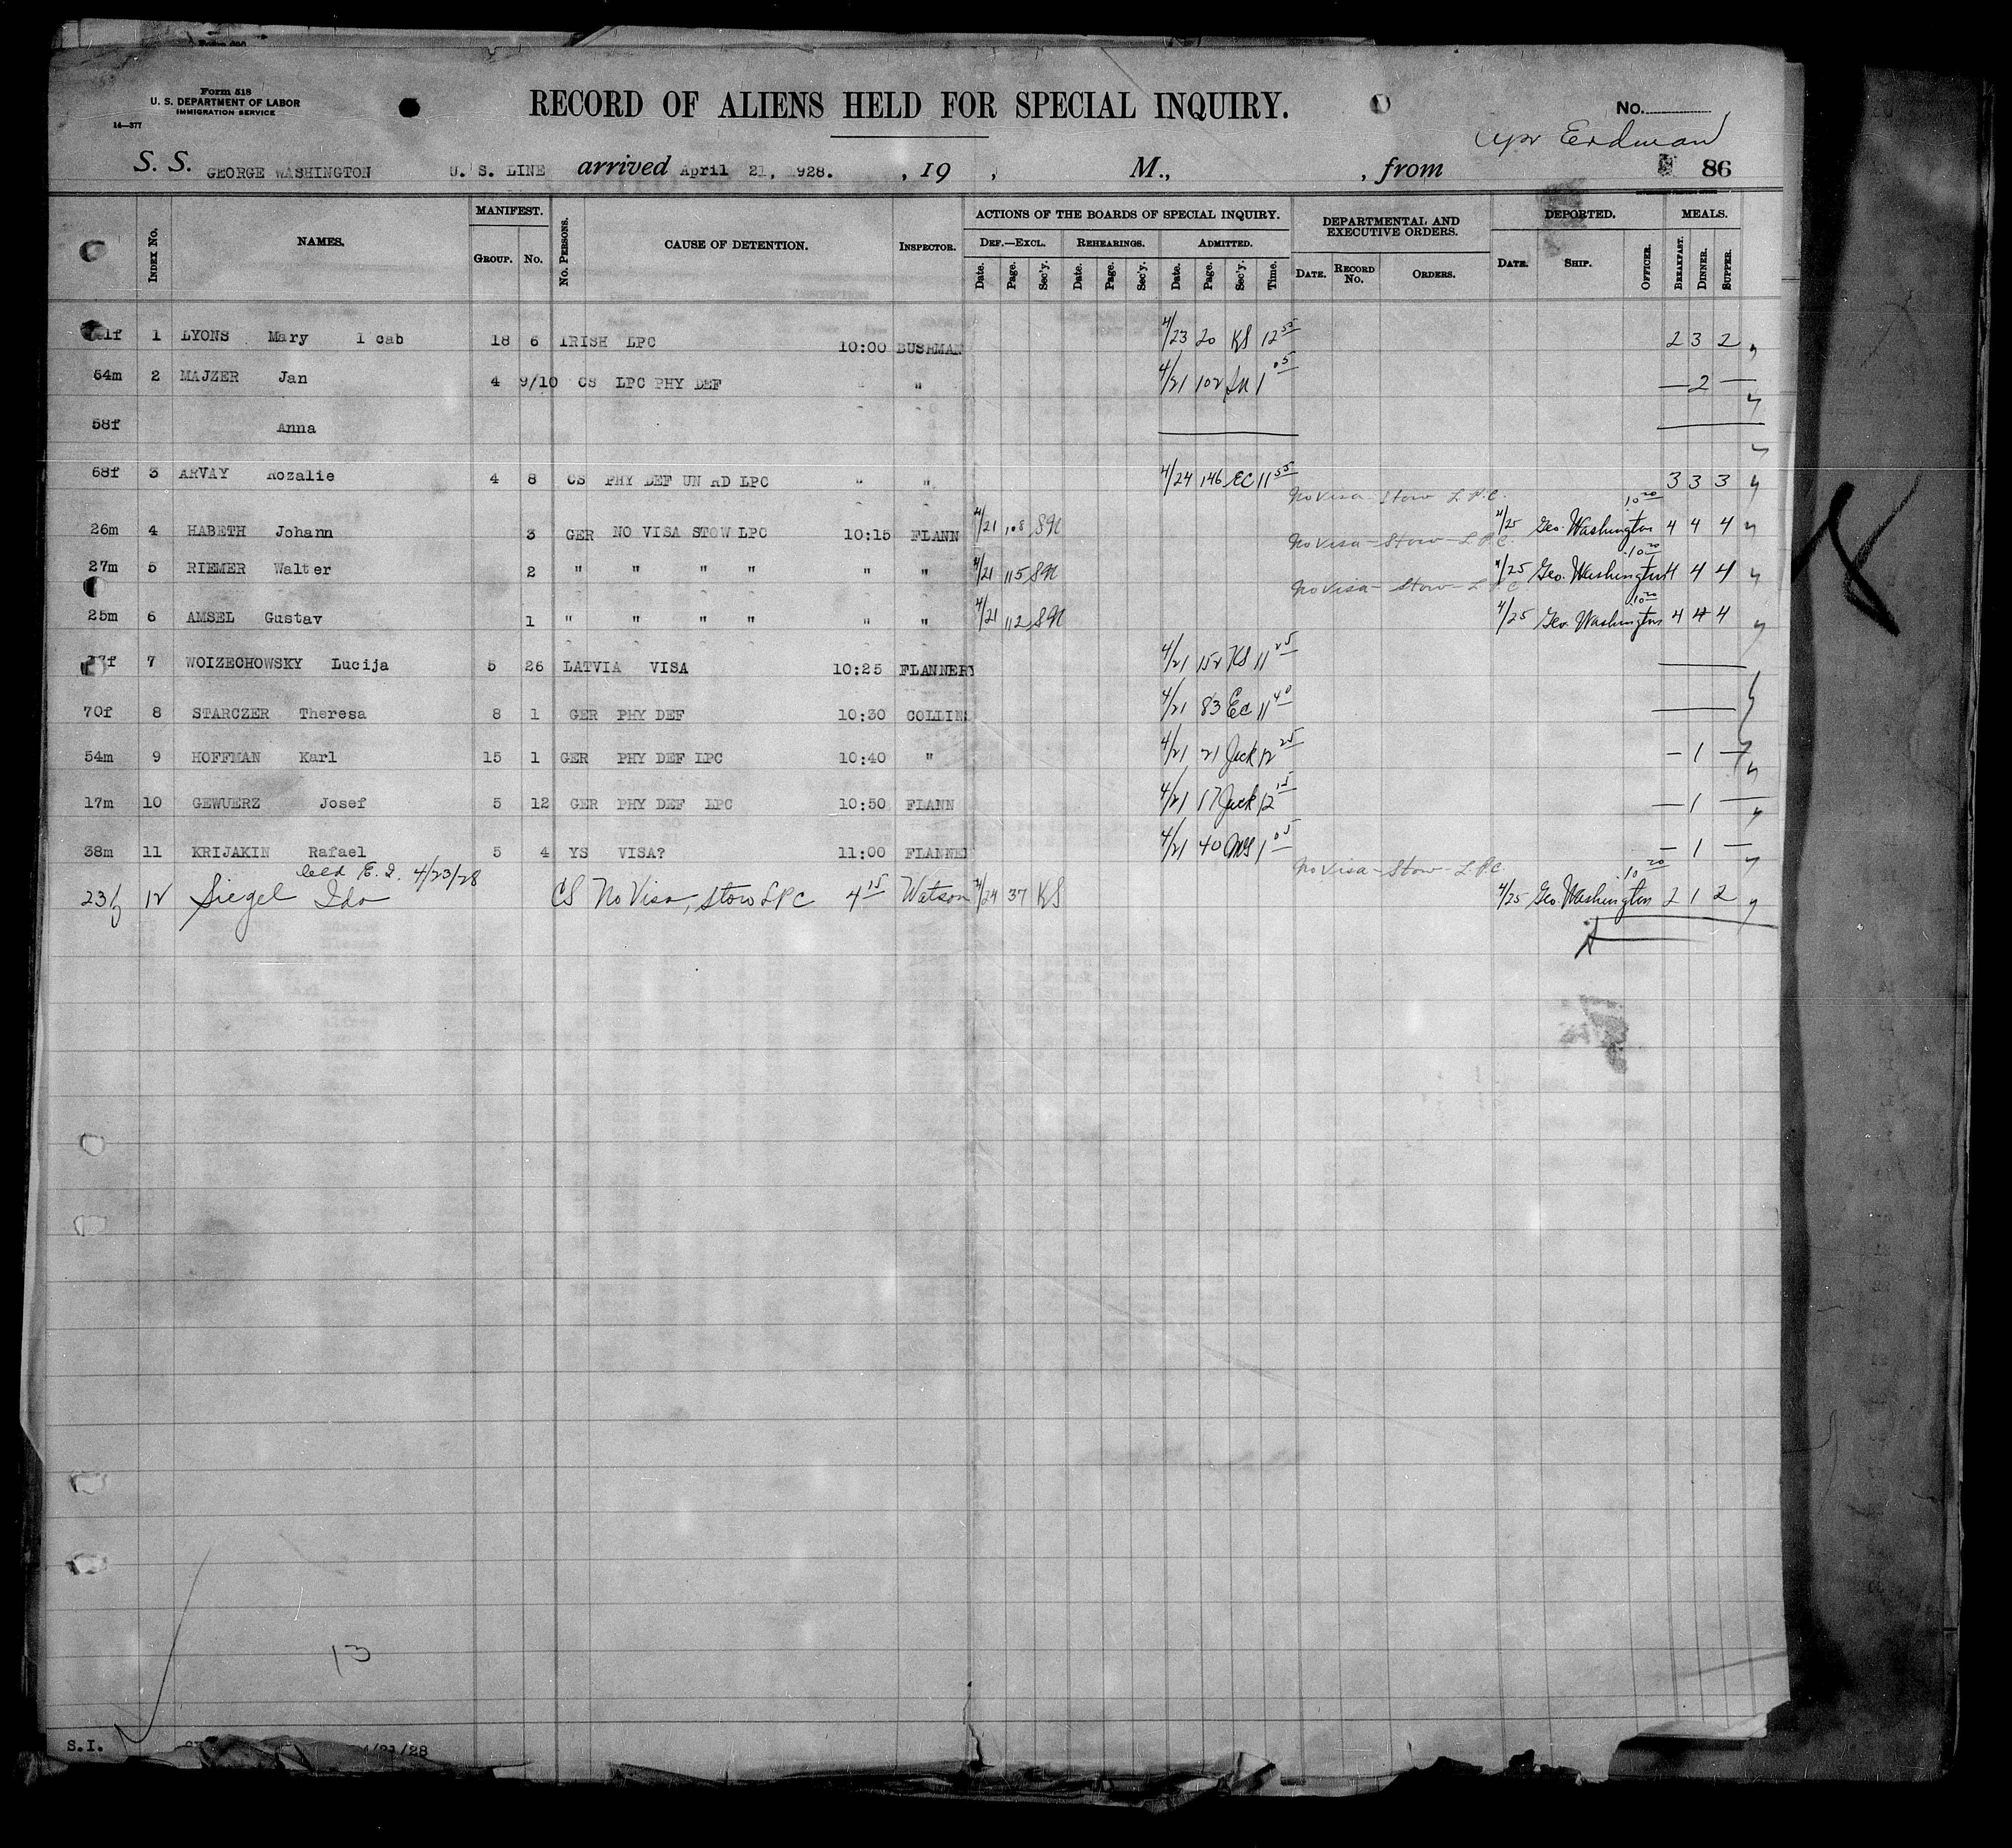 Form 518
U. S. DEPARTMENT OF LABOR
IMMIGRATION SERVICE
14—377
RECORD OF ALIENS HELD FOR SPECIAL INQUIRY.
No.
Erdman
S. S. GEORGE WASHINGTON U. S. LINE arrived April 21, 1928. , 19 , M., , from 86
INDEX No. NAMES. MANIFEST. GROUP. No. No. PERSONS. CAUSE OF DETENTION. INSPECTOR. ACTIONS OF THE BOARDS OF SPECIAL INQUIRY. DEF.—EXCL. Date. Page. Sec'y. REHEARINGS. Date. Page. Sec'y. ADMITTED. Date. Page. Sec'y. Time. DEPARTMENTAL AND EXECUTIVE ORDERS. DATE. RECORD No. ORDERS. DEPORTED. DATE. SHIP. OFFICER. MEALS. BREAKFAST. DINNER. SUPPER.
1 LYONS Mary 1 cab 18 6 IRISH LPC 10:00 BUSHMAN 4/23 20 KS 12 55 2 3 2
54m 2 MAJZER Jan 4 9/10 CS LPC PHY DEF " " 4/21 102 1 05 — 2 —
58f Anna
68f 3 ARVAY Rozalie 4 8 CS PHY DEF UN RD LPC " " 4/24 146 EC 11 55 3 3 3
No visa - Stow L.P.C. 10 20
26m 4 HABETH Johann 3 GER NO VISA STOW LPC 10:15 FLANN 4/21 108 SN 4/25 Geo. Washington 4 4 4
No visa - Stow - L.P.C. 10 20
27m 5 RIEMER Walter 2 " " " " " " 4/21 115 SN 4/25 Geo. Washington 4 4 4
No visa - Stow - L.P.C. 10 20
25m 6 AMSEL Gustav 1 " " " " " " 4/21 112 SN 4/25 Geo. Washington 4 4 4
7 WOIZECHOWSKY Lucija 5 26 LATVIA VISA 10:25 FLANNERY 4/21 152 KS 11 25
70f 8 STARCZER Theresa 8 1 GER PHY DEF 10:30 COLLINS 4/21 83 EC 11 40
54m 9 HOFFMAN Karl 15 1 GER PHY DEF LPC 10:40 " 4/21 21 Jack 12 25 — 1 —
17m 10 GEWUERZ Josef 5 12 GER PHY DEF LPC 10:50 FLANN 4/21 17 Jack 12 15 — 1 —
38m 11 KRIJAKIN Rafael 5 4 YS VISA? 11:00 FLANNE 4/21 40 1 05 — 1 —
held E. I. 4/23/28 No visa - Stow - L.P.C. 10 20
23f 12 Siegel Ida CS No Visa, Stow LPC 4 15 Watson 4/24 37 KS 4/25 Geo. Washington 2 1 2
13
S.I. /28